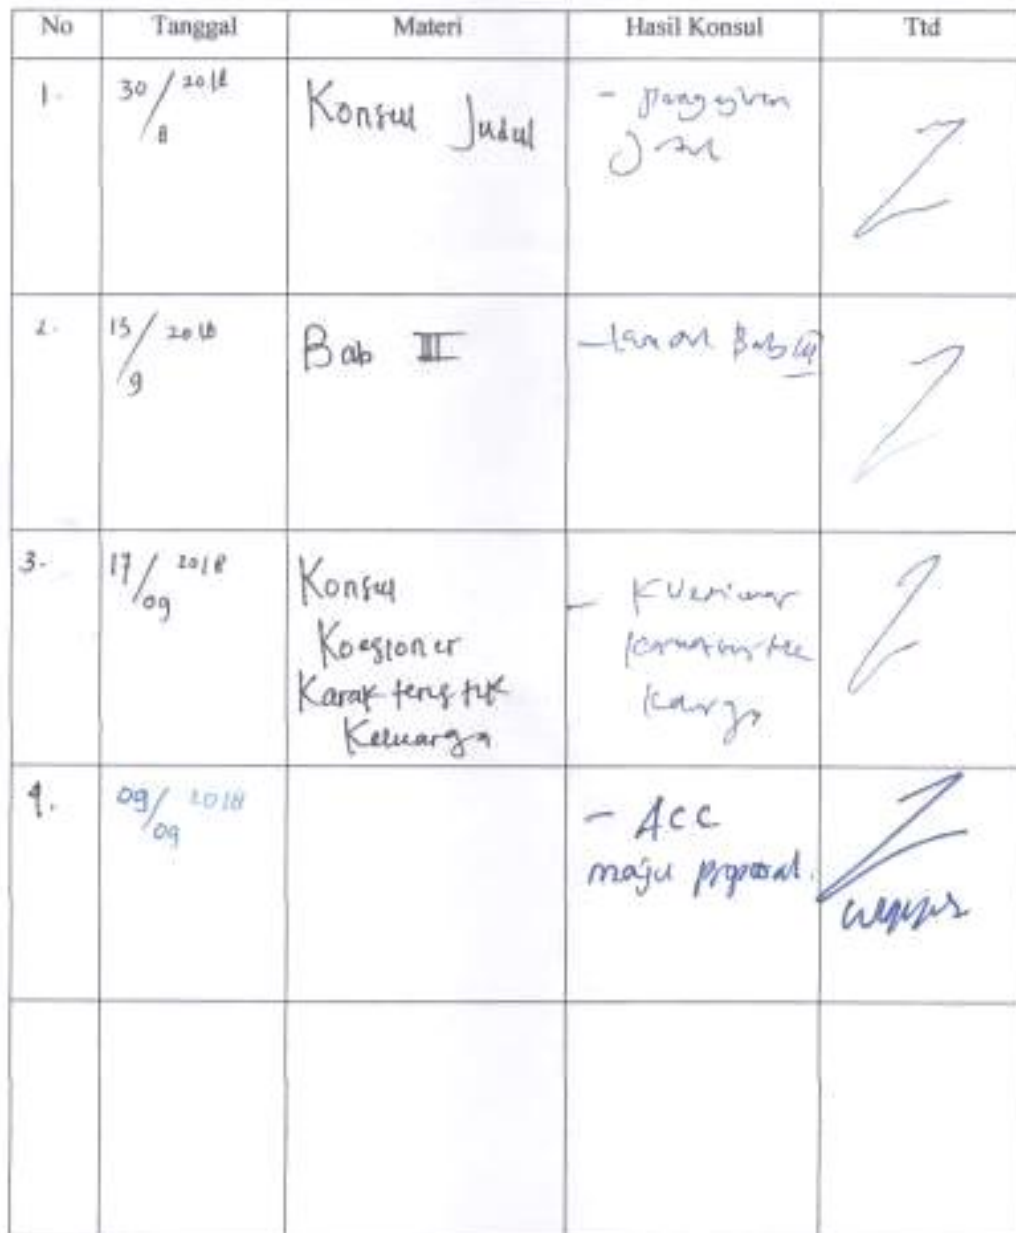 No Tanggal Materi Hasil Konsul Ttd
1. 30/8 2018 Konsul Judul - pengajuan
2. 15/9 2018 Bab III - Bab III
3. 17/09 2018 Konsul
Koesioner
Karakteristik
Keluarga
- Kuesioner
4. 09/09 2018 - ACC
maju proposal.